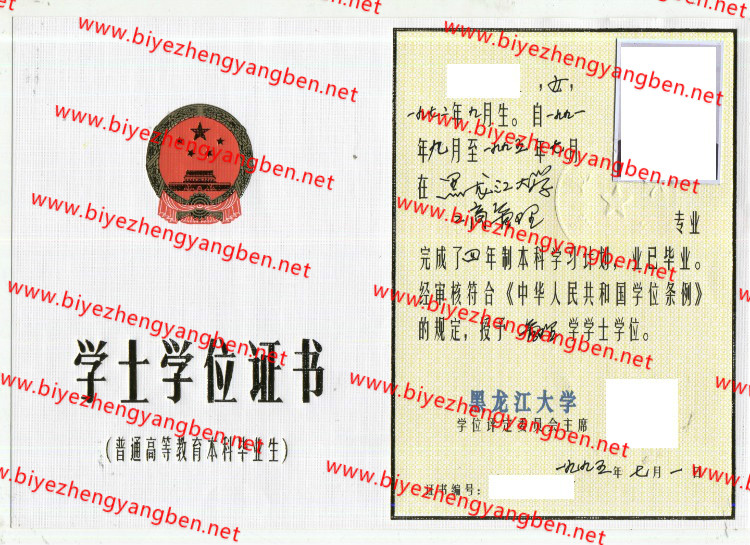 www.biyezhengyangben.net
学士学位证书
(普通高等教育本科毕业生)
,女,
一九七二年九月生。自一九九一
年九月至一九九五年七月
在黑龙江大学
工商管理
专业
完成了四年制本科学习计划,业已毕业。
经审核符合《中华人民共和国学位条例》
的规定,授予 学学士学位。
黑龙江大学
学位评定委员会主席
一九九五年七月一日
证书编号: